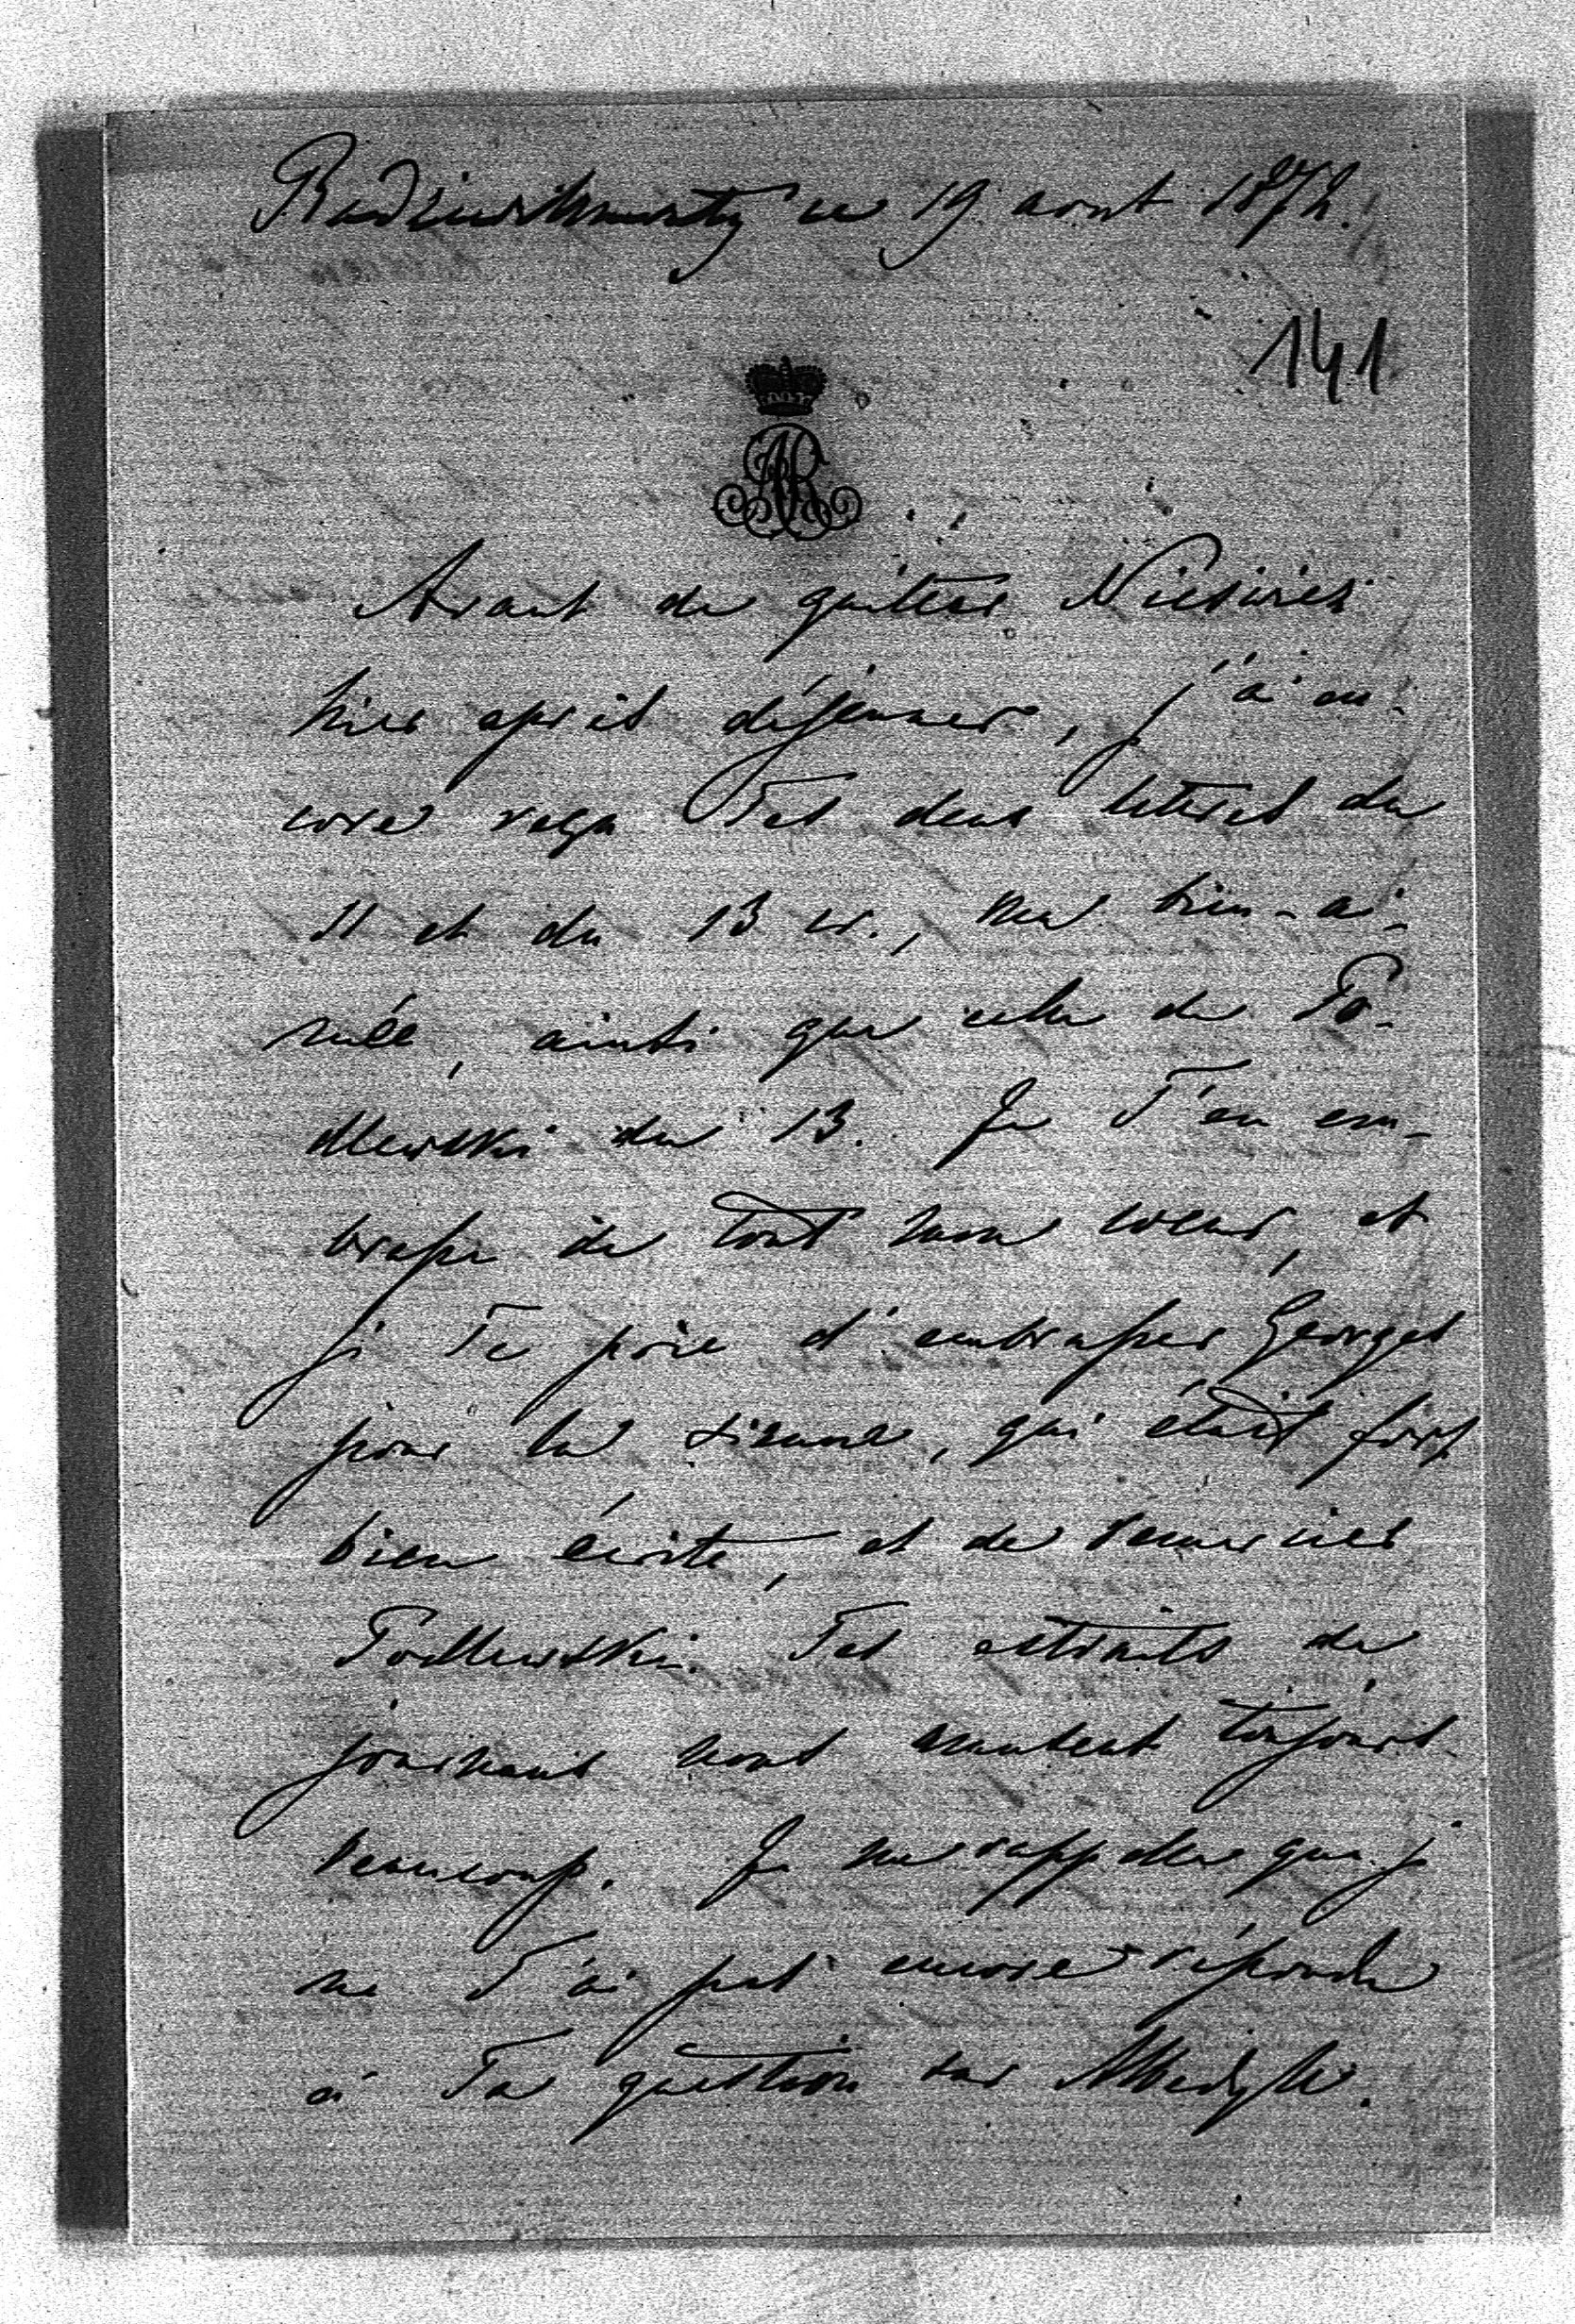 Radziwillmonty ce 19 aout 1872.
141
AR
Avant de quitter Nieświeź
hier après déjeuner, j'ai en-
core reçu Tes deux lettres du
11 et du 13 cr., ma bien-ai-
mée, ainsi que celle de Po-
dlewski du 13. Je T'en em-
brasse de tout mon coeur, et
je Te prie d'embrasser Georges
pour la sienne, qui était fort
bien écrite, et de remercier
Podlewski. Tes extraits de
journaux nous amusent toujours
beaucoup. Je me rappelle que je
ne T'ai pas encore répondu
à Ta question sur Albedyll.